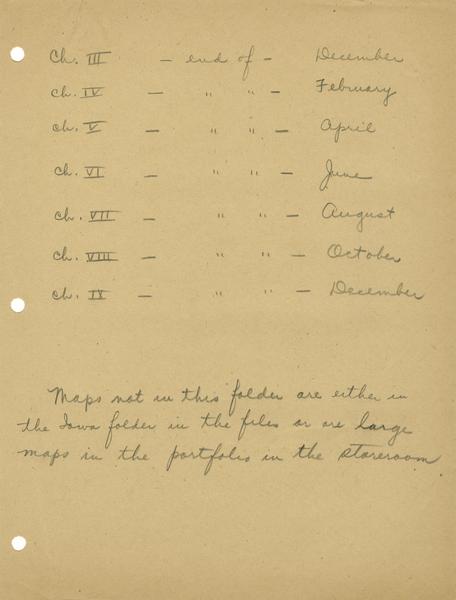 Ch. III — end of — December
Ch. IV — " " — February
Ch. V — " " — April
Ch. VI — " " — June
Ch. VII — " " — August
Ch. VIII — " " — October
Ch. IX — " " — December
Maps not in this folder are either in
the Iowa folder in the files or are large
maps in the portfolio in the storeroom